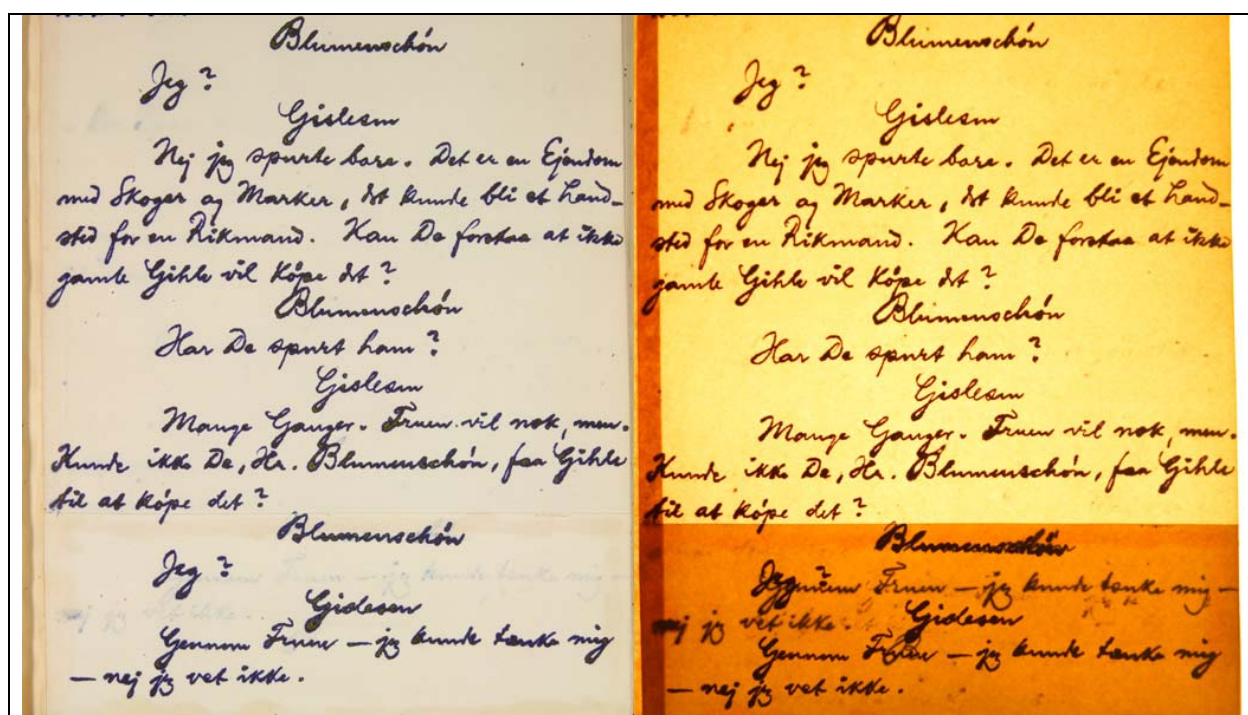 Blumenschön
Jeg?
Gislesen
Nej jeg spurte bare. Det er en Ejendom
med Skoger og Marker, det kunde bli et Land-
sted for en Rikmand. Kan De forstaa at ikke
gamle Gihle vil köpe det?
Blumenschön
Har De spurt ham?
Gislesen
Mange Ganger. Fruen vil nok, men.
Kunde ikke De, Hr. Blumenschön, faa Gihle
til at köpe det?
Blumenschön
Jeg?
Gislesen
Gennem Fruen — jeg kunde tænke mig
— nej jeg vet ikke.
Blumenschön
Jeg?
Gislesen
Nej jeg spurte bare. Det er en Ejendom
med Skoger og Marker, det kunde bli et Land-
sted for en Rikmand. Kan De forstaa at ikke
gamle Gihle vil köpe det?
Blumenschön
Har De spurt ham?
Gislesen
Mange Ganger. Fruen vil nok, men.
Kunde ikke De, Hr. Blumenschön, faa Gihle
til at köpe det?
Blumenschön
Jeg?
Gennem Fruen — jeg kunde tænke mig —
nej jeg vet ikke.
Gislesen
Gennem Fruen — jeg kunde tænke mig
— nej jeg vet ikke.